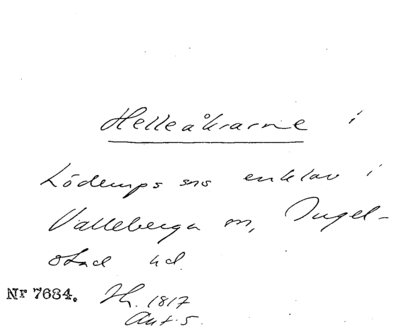 Helleåkrarne i
Löderups sns enklav i
Valleberga sn, Ingel-
stad hd.
Nr 7684. Th. 1817
Akt 5.